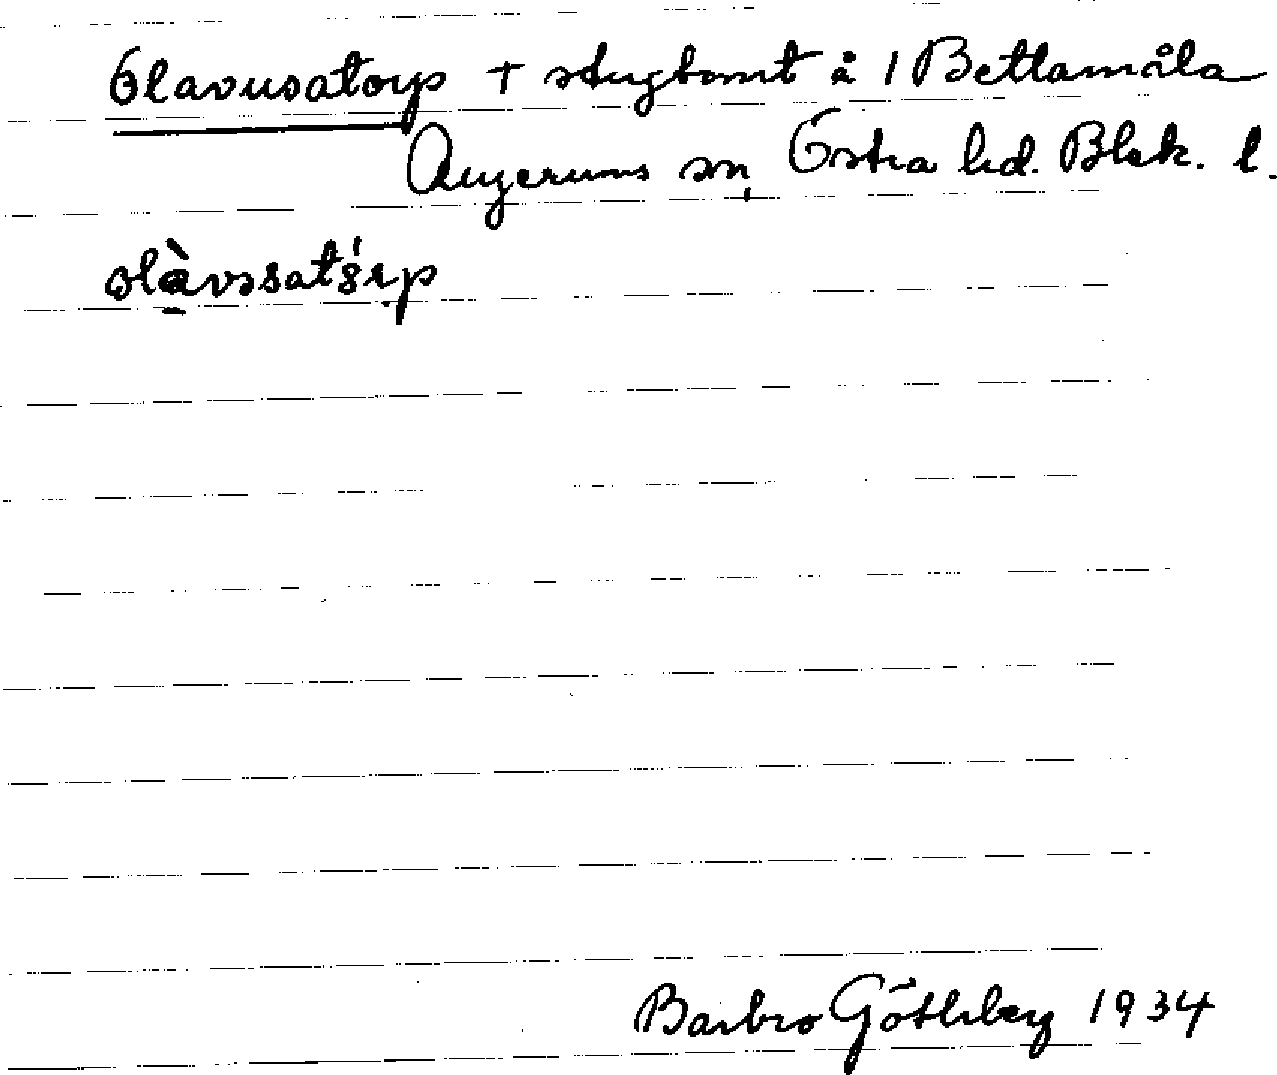 Olavusatorp + stugtomt å 1 Bettamåla
Augerums sn, Östra hd. Blek. l.
Barbro Göthberg 1934